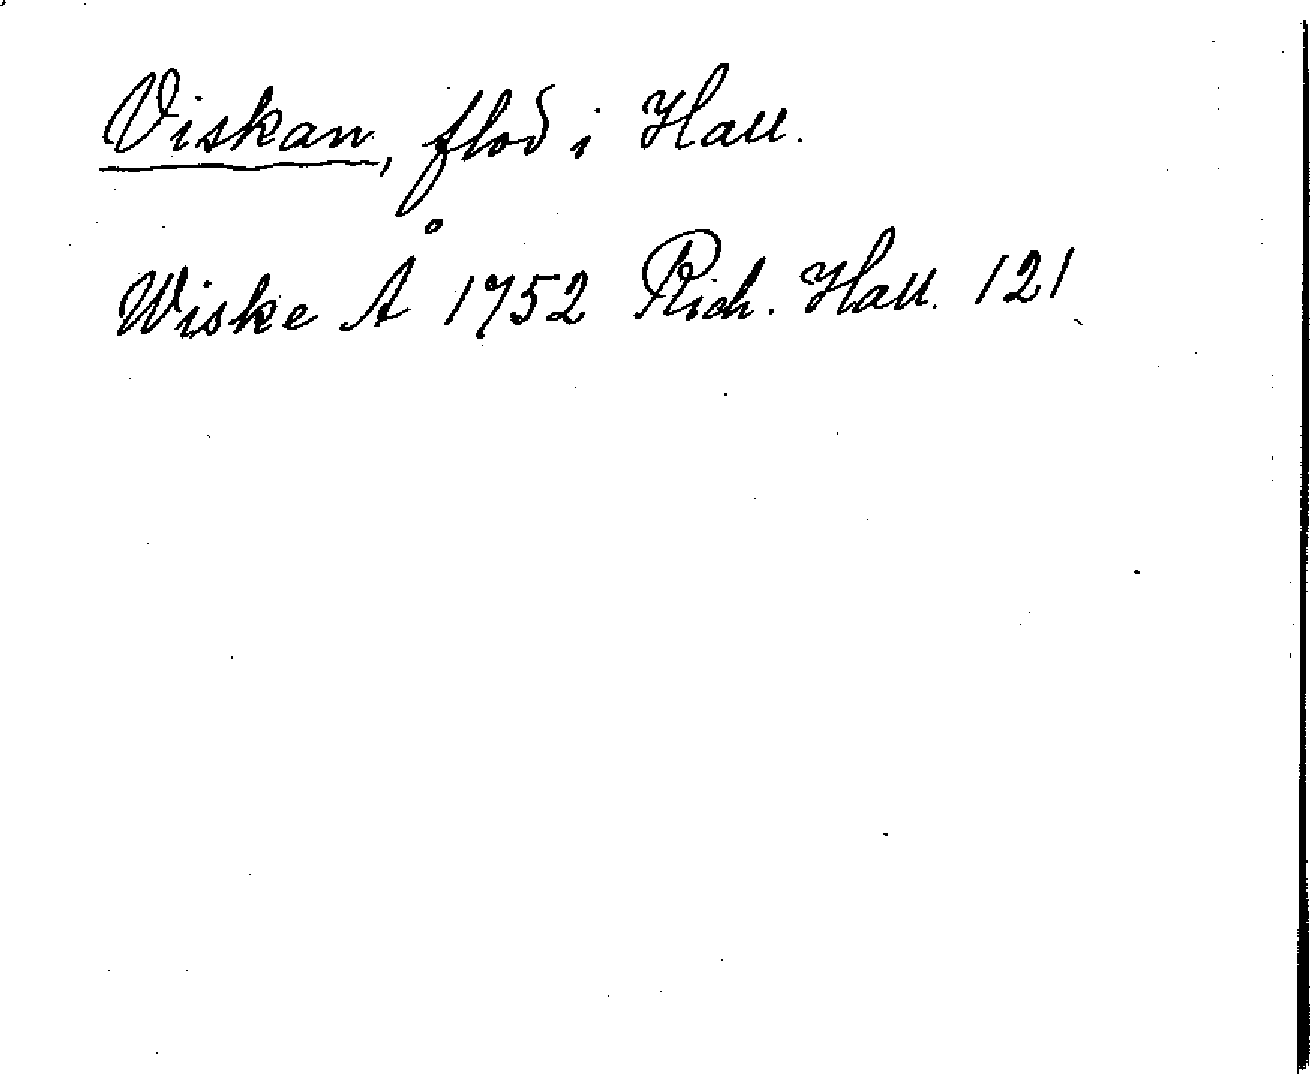 Viskan, flod i Hall.
Wiske Å 1752 Rich. Hall. 121